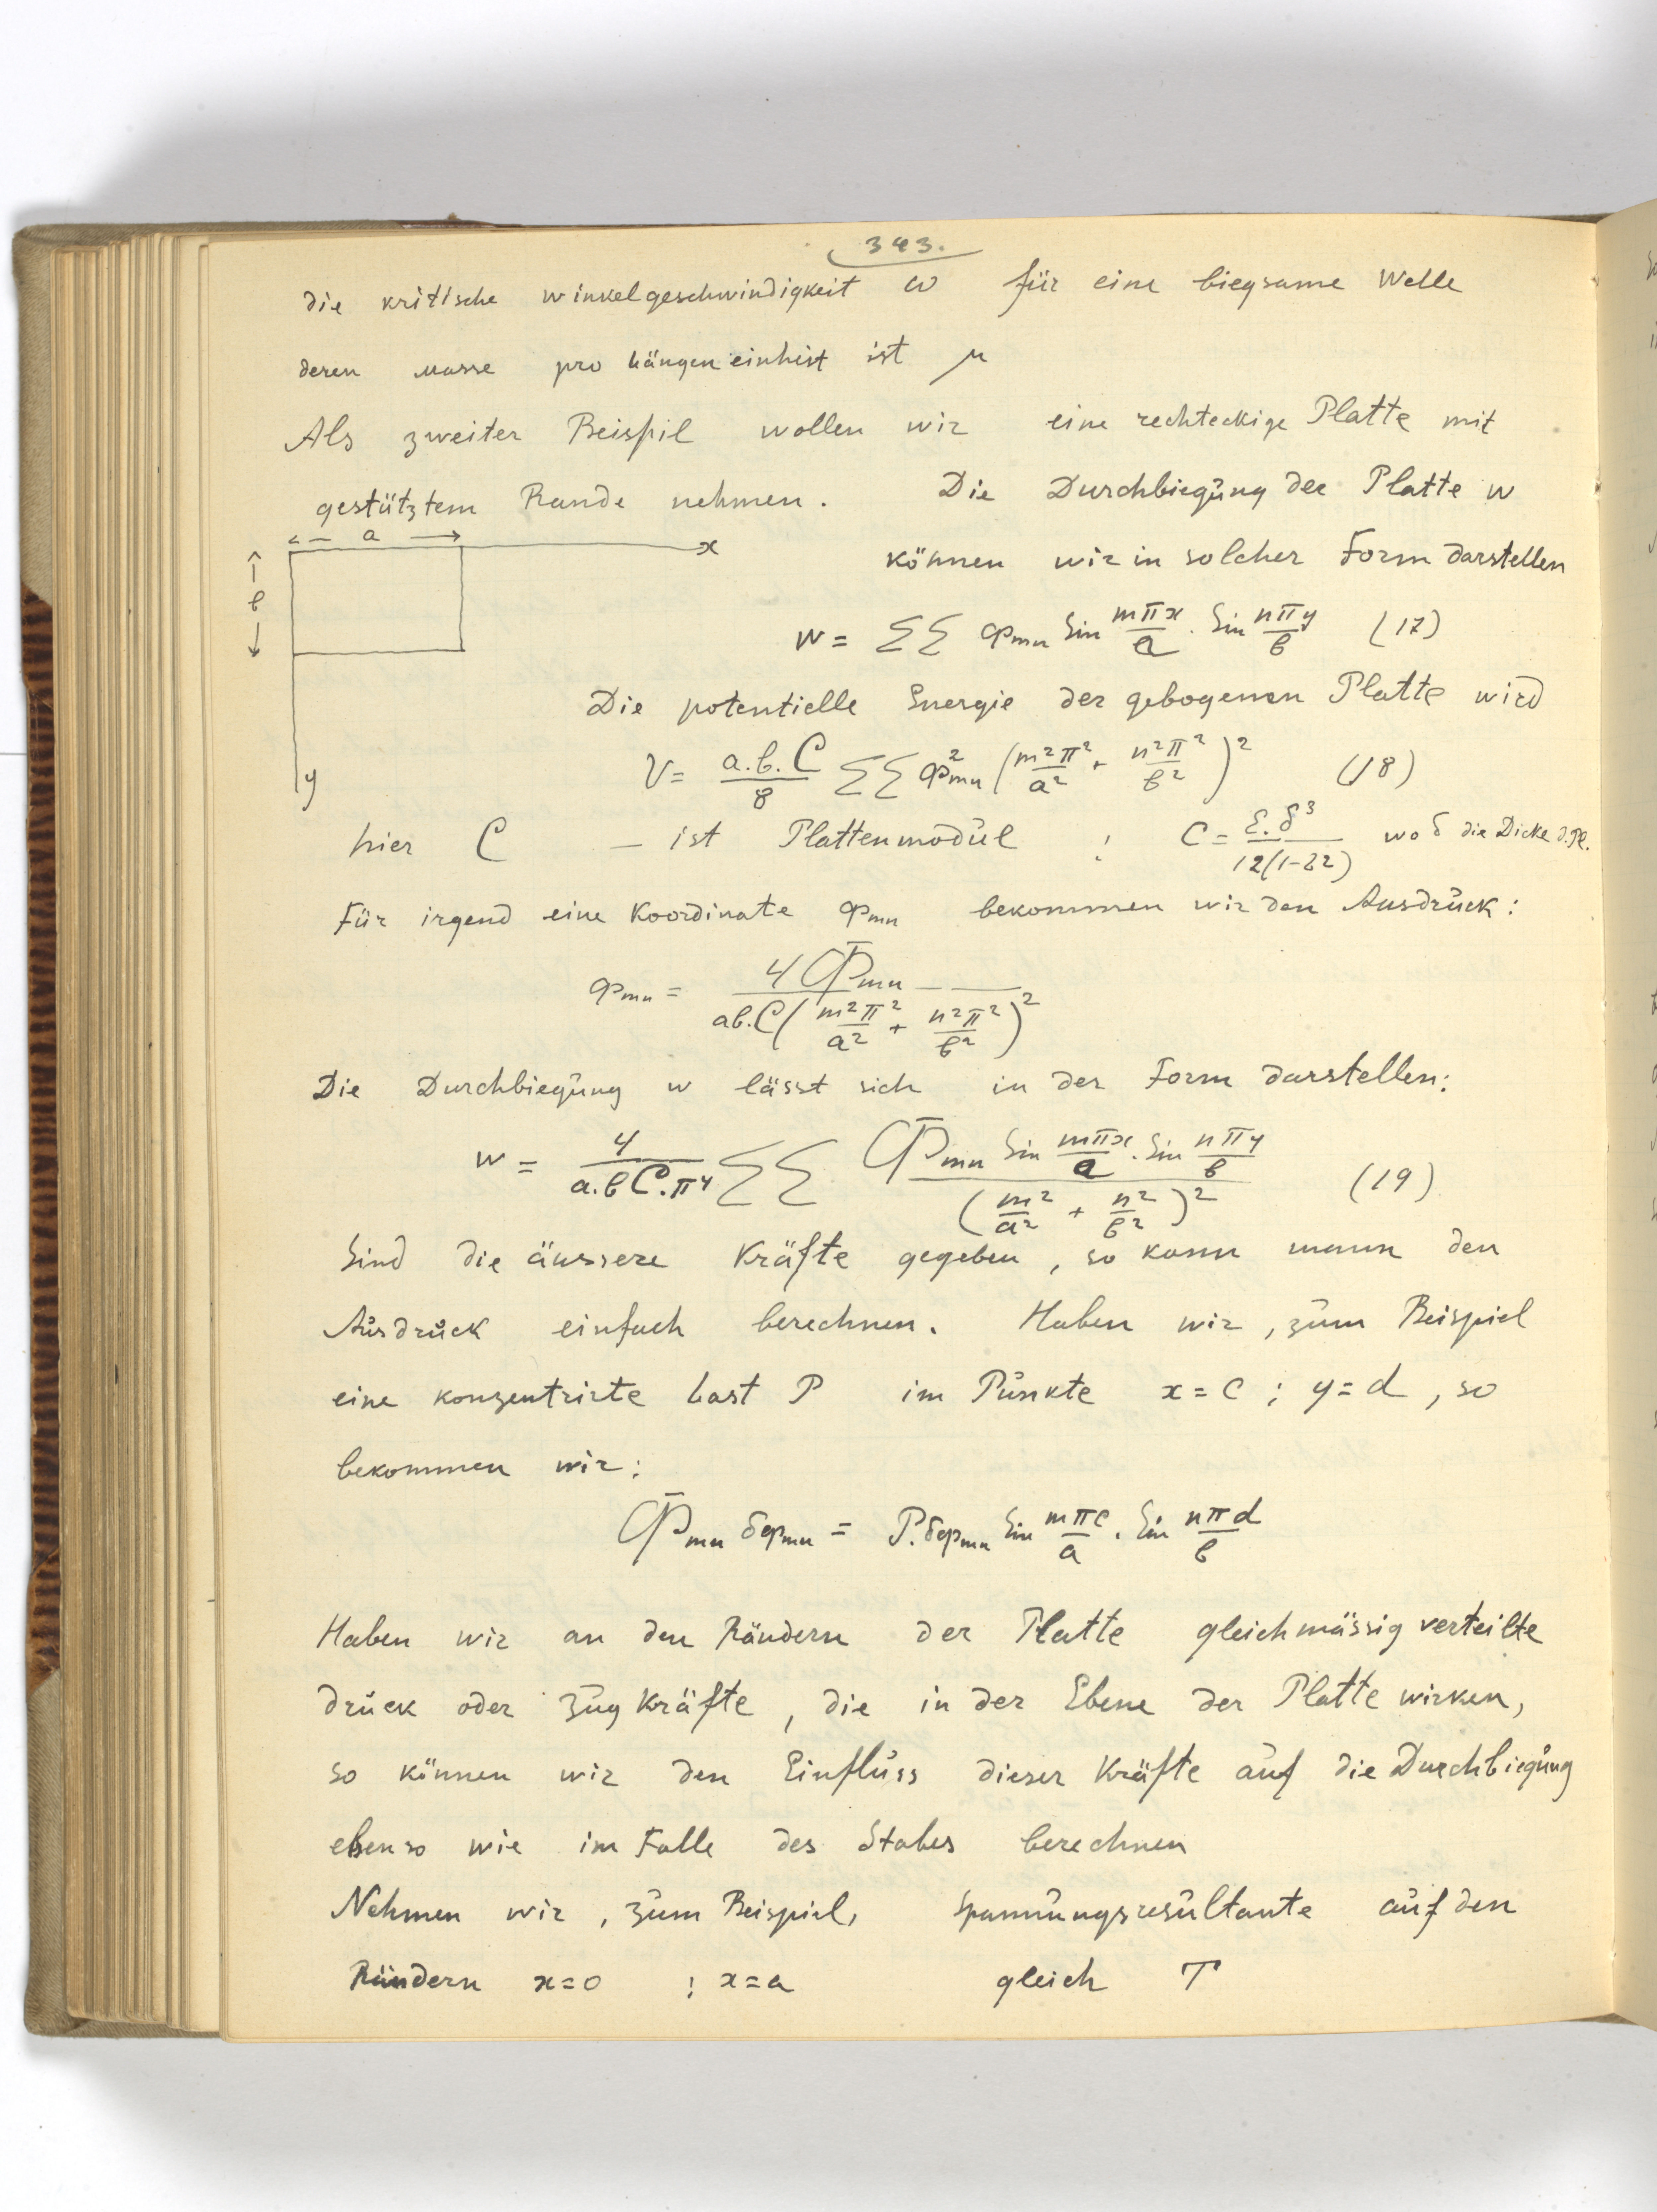 343.
die kritische winkelgeschwindigkeit ω für eine biegsame Welle
deren masse pro Längeneinheit ist μ
Als zweiter Beispil wollen wir eine rechteckige Platte mit
gestütztem Rande nehmen. Die Durchbiegung der Platte w
← a → x
b
y
können wir in solcher Form darstellen
w = ΣΣ φmn Sin mπx/a . Sin nπy/b (17)
Die potentielle Energie der gebogenen Platte wird
V = a.b.C/8 ΣΣ φ²mn (m²π²/a² + n²π²/b²)² (18)
hier C – ist Plattenmodul ; C = ε.δ³/12(1-ν²) wo δ die Dicke d.Pl.
Für irgend eine Koordinate φmn bekommen wir den Ausdruck:
φmn = 4Φmn / ab.C(m²π²/a² + n²π²/b²)²
Die Durchbiegung w lässt sich in der Form darstellen:
w = 4/a.bC.π⁴ ΣΣ Φmn Sin mπx/a . Sin nπy/b / (m²/a² + n²/b²)² (19)
Sind die äussere Kräfte gegeben, so kann mann den
Ausdruck einfach berechnen. Haben wir, zum Beispiel
eine konzentrirte Last P im Punkte x=c ; y=d, so
bekommen wir:
Φmn δφmn = P.δφmn Sin mπc/a . Sin nπd/b
Haben wir an den Rändern der Platte gleichmässig verteilte
druck oder Zug Kräfte, die in der Ebene der Platte wirken,
so können wir den Einfluss dieser Kräfte auf die Durchbiegung
ebenso wie im Falle des Stabes berechnen
Nehmen wir, zum Beispiel, Spannungsresultante auf den
Rändern x=0 ; x=a gleich T